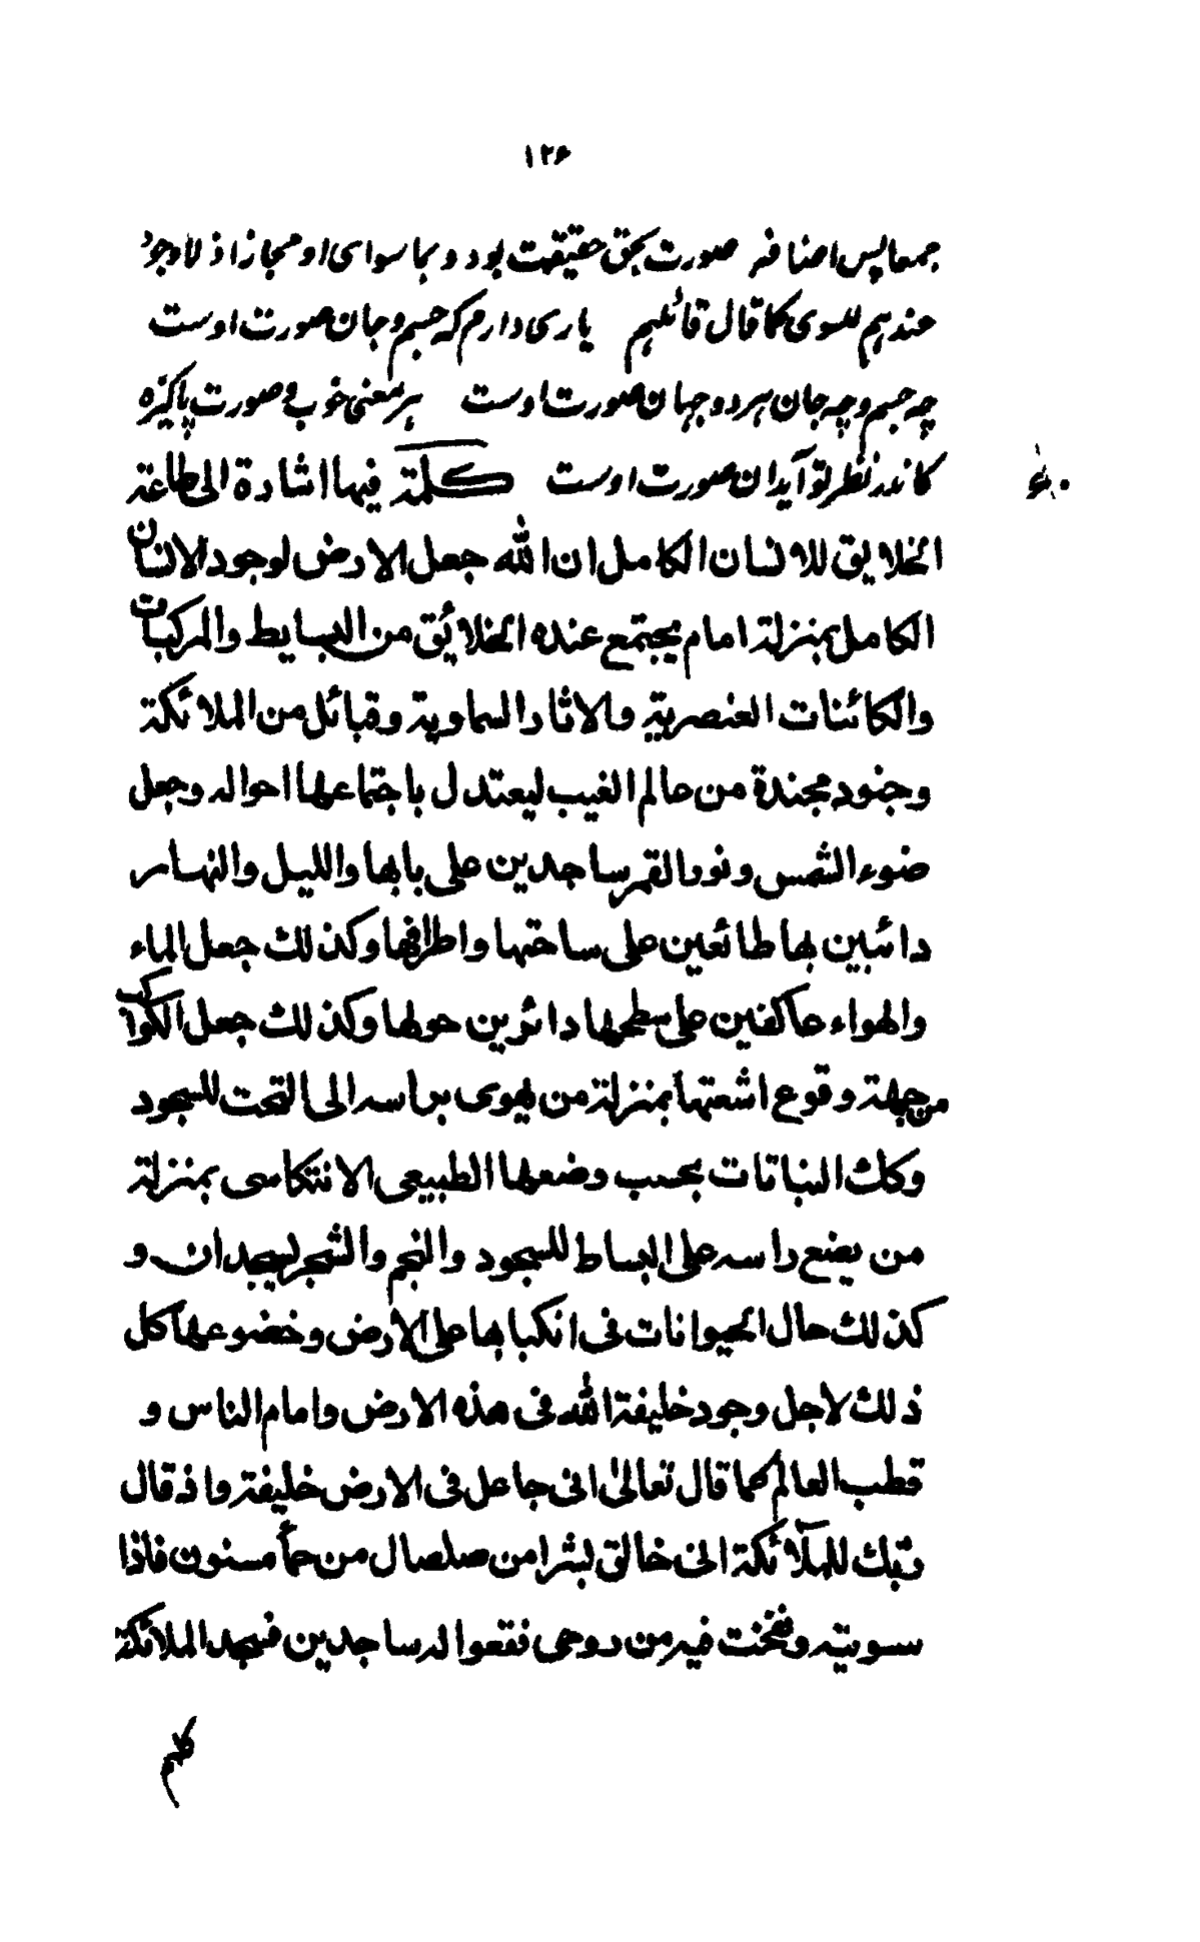 ۱۲۶
جمعا پس اضافه صورت بحق حقیقت بود و بما سوای او مجاز اذ لا وجود
عندهم للسوی کما قال قائلهم یاری دارم که جسم و جان صورت اوست
چه جسم و چه جان هر دو جهان صورت اوست هر معنی خوب و صورت پاکیزه
کاندر نظر تو آید ان صورت اوست کلمة فیها اشارة الی طاعة
الخلایق للانسان الکامل ان الله جعل الارض لوجود الانسان
الکامل بمنزلة امام یجتمع عنده الخلائق من البسایط والمرکبات
والکائنات العنصریة والاثار السماویة وقبائل من الملائکة
وجنود مجندة من عالم الغیب لیعتدل باجتماعها احواله وجعل
ضوء الشمس ونور القمر ساجدین علی بابها واللیل والنهار
دائبین بها طائعین علی ساحتها واطرافها وکذلك جعل الماء
والهواء عاکفین علی سطحها دائرین حولها وکذلك جعل الکواکب
من جهة وقوع اشعتها بمنزلة من یهوی براسه الی التحت للسجود
وکك النباتات بحسب وضعها الطبیعی الانتکاسی بمنزلة
من یضع راسه علی البساط للسجود والنجم والشجر یسجدان و
کذلك حال الحیوانات فی انکبابها علی الارض وخضوعها کل
ذلك لاجل وجود خلیفة الله فی هذه الارض وامام الناس و
قطب العالم کما قال تعالی انی جاعل فی الارض خلیفة واذ قال
ربك للملآئکة انی خالق بشرا من صلصال من حمأ مسنون فاذا
سویته ونفخت فیه من روحی فقعوا له ساجدین فسجد الملائکة
کلهم